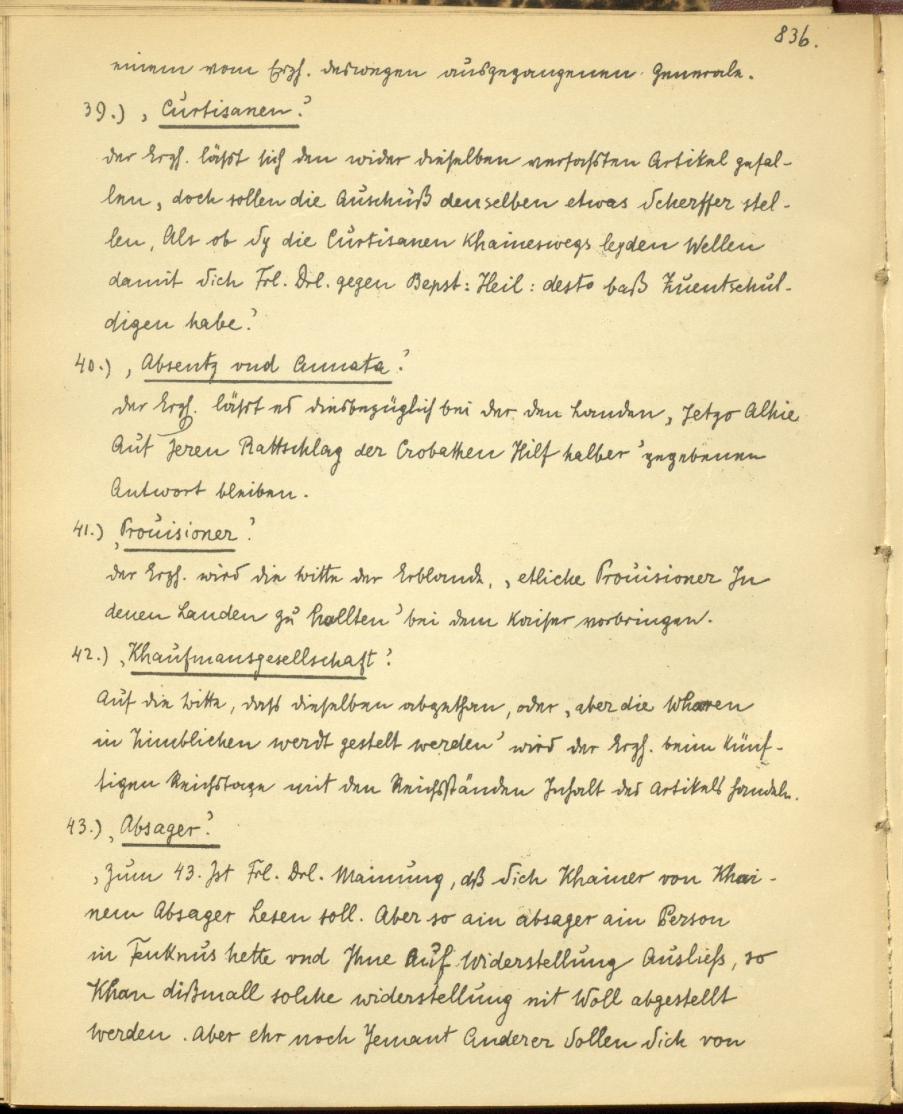 836.
einem vom Erzh. deswegen ausgegangenen Generale.
39.) ‚Curtisanen.‘
der Erzh. läßt sich den wider dieselben verfaßten Artikel gefal-
len, doch sollen die Auschüß denselben etwas Scherffer stel-
len, Als ob Sy die Curtisanen Khaineswegs leyden Wellen
damit Sich Frl. Drl. gegen Bepst: Heil: desto baß Zuentschul-
digen habe.‘
40.) ‚Absentz vnd Annata.‘
der Erzh. läßt es diesbezüglich bei der den Landen ‚Jetzo Alhie
Auf Jeren Rattschlag der Crobathen Hilf halber‘ gegebenen
Antwort bleiben.
41.) ‚Prouisioner.‘
der Erzh. wird die Bitte der Erblande, ‚etliche Prouisioner In
denen Landen zu hallten‘ bei dem Kaiser vorbringen.
42.) ‚Khaufmansgesellschaft.‘
Auf die Bitte, daß dieselben abgethan, oder ‚aber die Wharen
in Zimblichen werdt gestelt werden‘ wird der Erzh. beim künf-
tigen Reichstage mit den Reichsständen Inhalt des Artikels handeln.
43.) ‚Absager.‘
‚Zum 43. Ist Frl. Drl. Mainung, dß Sich Khainer von Khai-
nem Absager Lesen soll. Aber so ain absager ain Person
in Fenknus hette vnd Ihne Auf Widerstellung Ausließ, so
Khan dißmall solche widerstellung nit Woll abgestellt
werden. Aber ehr noch Jemant Anderer Sollen Sich von